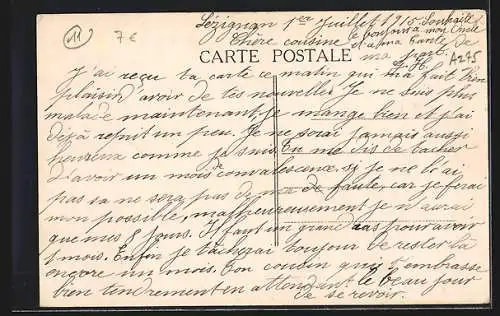 11
7€
Lézignan 1er Juillet 1915. Souhaite
Chère cousine le bonjour a mon Oncle
et a ma Tante de
CARTE POSTALE ma part
A295
J'ai reçu ta carte ce matin qui m'a fait bien
plaisir d'avoir de tes nouvelles. Je ne suis plus
malade maintenant je mange bien et j'ai
déjà refait un peu. Je ne serai jamais aussi
heureux comme je suis. Tu me dis de tacher
d'avoir un mois de convalescence, si je ne l'ai
pas sa ne sera pas de ma faute, car je ferai
mon possible, malheureusement je n'aurai
que mes 8 jours. Il faut un grand pour avoir
1 mois. Enfin je tâcherai toujour de rester la
encore un mois. Ton cousin qui t'embrasse
bien tendrement en attendant le beau jour
de se revoir.